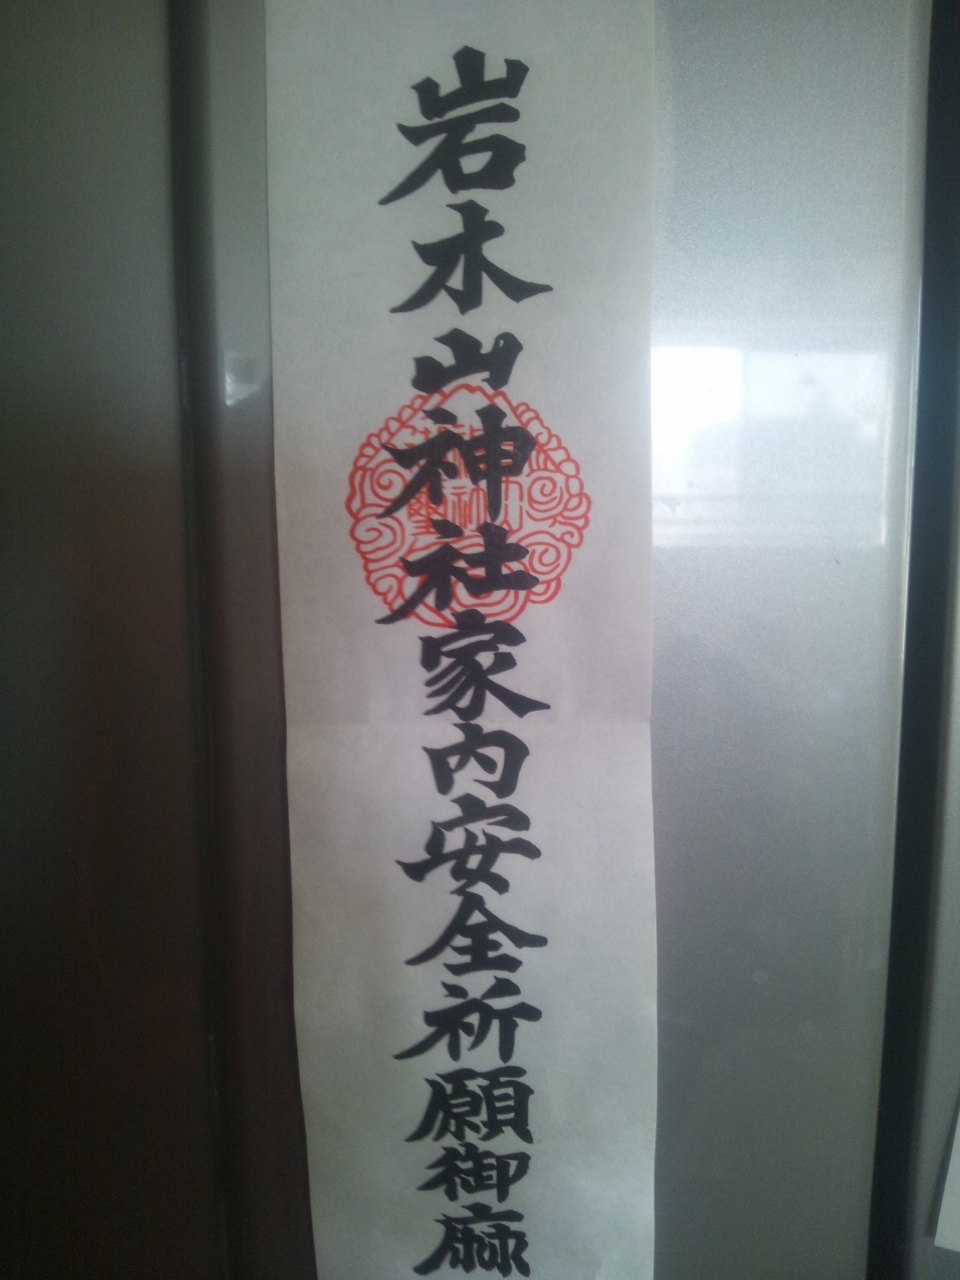 岩木山神社家内安全祈願御麻